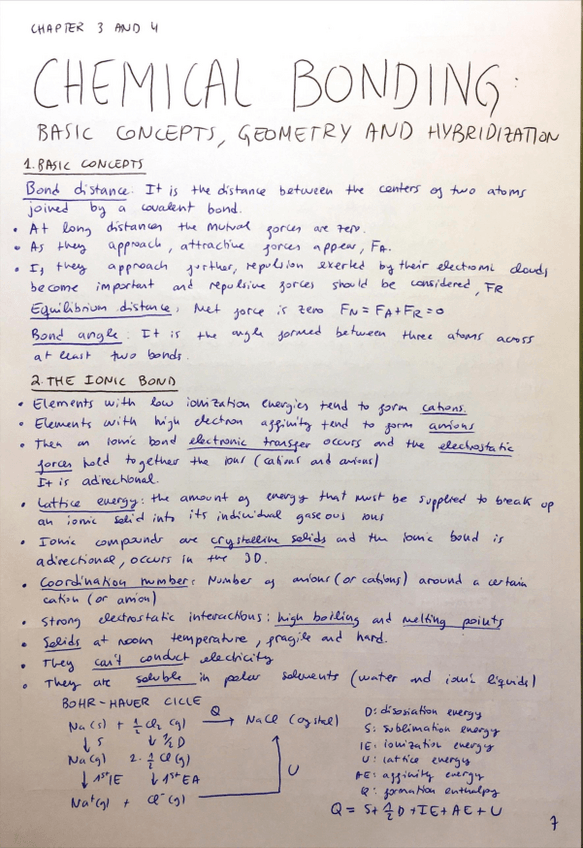 CHAPTER 3 AND 4
CHEMICAL BONDING:
BASIC CONCEPTS, GEOMETRY AND HYBRIDIZATION
1. BASIC CONCEPTS
Bond distance. It is the distance between the centers of two atoms
joined by a covalent bond.
• At long distances the mutual forces are zero.
• As they approach, attractive forces appear, FA.
• If they approach further, repulsion exerted by their electronic clouds
become important and repulsive forces should be considered, FR
Equilibrium distance: Net force is zero FN = FA + FR = 0
Bond angle. It is the angle formed between three atoms across
at least two bonds.
2. THE IONIC BOND
• Elements with low ionization energies tend to form cations.
• Elements with high electron affinity tend to form anions
• Then an ionic bond electronic transfer occurs and the electrostatic
forces hold together the ions (cations and anions)
It is adirectional.
• Lattice energy: the amount of energy that must be supplied to break up
an ionic solid into its individual gaseous ions
• Ionic compounds are crystalline solids and the ionic bond is
adirectional, occurs in the 3D.
• Coordination number: Number of anions (or cations) around a certain
cation (or anion)
• Strong electrostatic interactions: high boiling and melting points
• Solids at room temperature, fragile and hard.
• They can't conduct electricity
• They are soluble in polar solvents (water and ionic liquids)
BOHR-HAVER CICLE
Na(s) + 1/2 Cl2 (g) → Q NaCl (crystal)
↓ S ↓ 1/2 D
Na(g) 2 · 1/2 Cl(g)
↓ 1st IE ↓ 1st EA
Na⁺(g) + Cl⁻(g)
U
D: disosiation energy
S: sublimation energy
IE: ionization energy
U: lattice energy
AE: affinity energy
Q: formation enthalpy
Q = S + 1/2 D + IE + AE + U
7